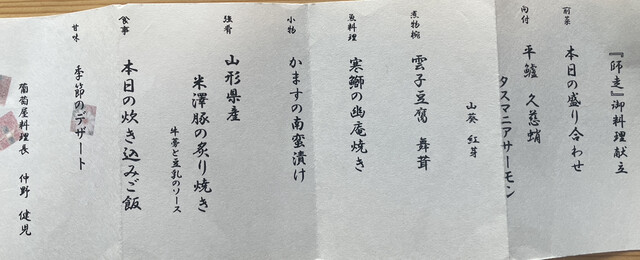 『師走』御料理献立
前菜
本日の盛り合わせ
向付
平鱸 久慈蛸
タスマニアサーモン
山葵 紅芽
煮物椀
雲子豆腐 舞茸
魚料理
寒鰤の幽庵焼き
小物
かますの南蛮漬け
強肴
山形県産
米澤豚の炙り焼き
牛蒡と豆乳のソース
食事
本日の炊き込みご飯
甘味
季節のデザート
葡萄屋料理長 仲野 健児